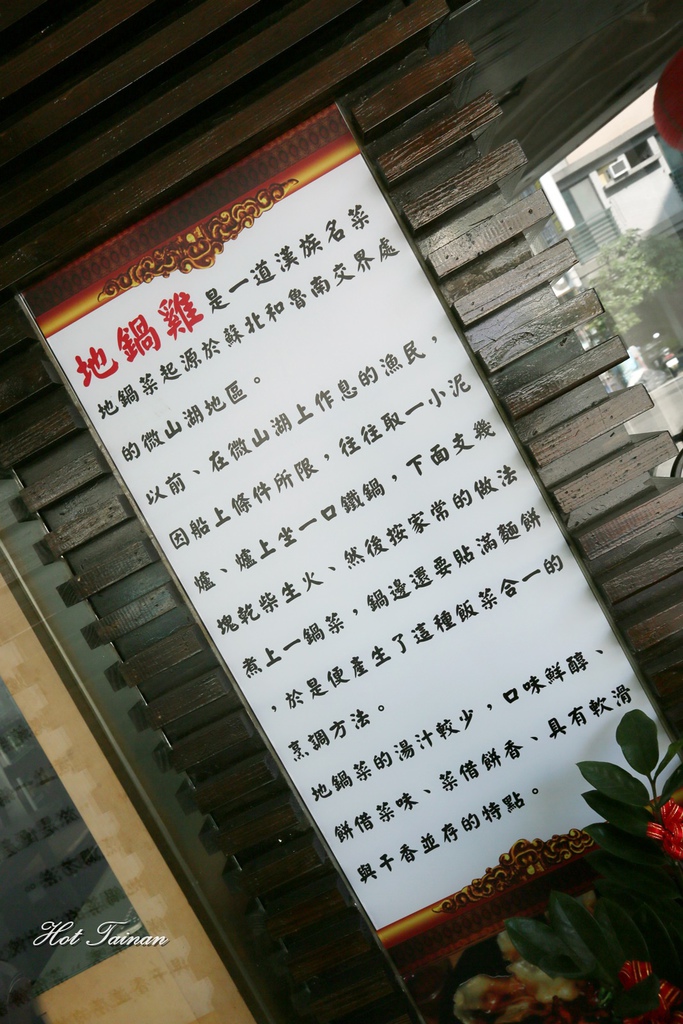 地鍋雞是一道漢族名菜
地鍋菜起源於蘇北和魯南交界處
的微山湖地區。
以前、在微山湖上作息的漁民，
因船上條件所限，往往取一小泥
爐、爐上坐一口鐵鍋，下面支幾
塊乾柴生火、然後按家常的做法
煮上一鍋菜，鍋邊還要貼滿麵餅
，於是便產生了這種飯菜合一的
烹調方法。
地鍋菜的湯汁較少，口味鮮醇、
餅借菜味、菜借餅香、具有軟滑
與干香並存的特點。
Hot Tainan